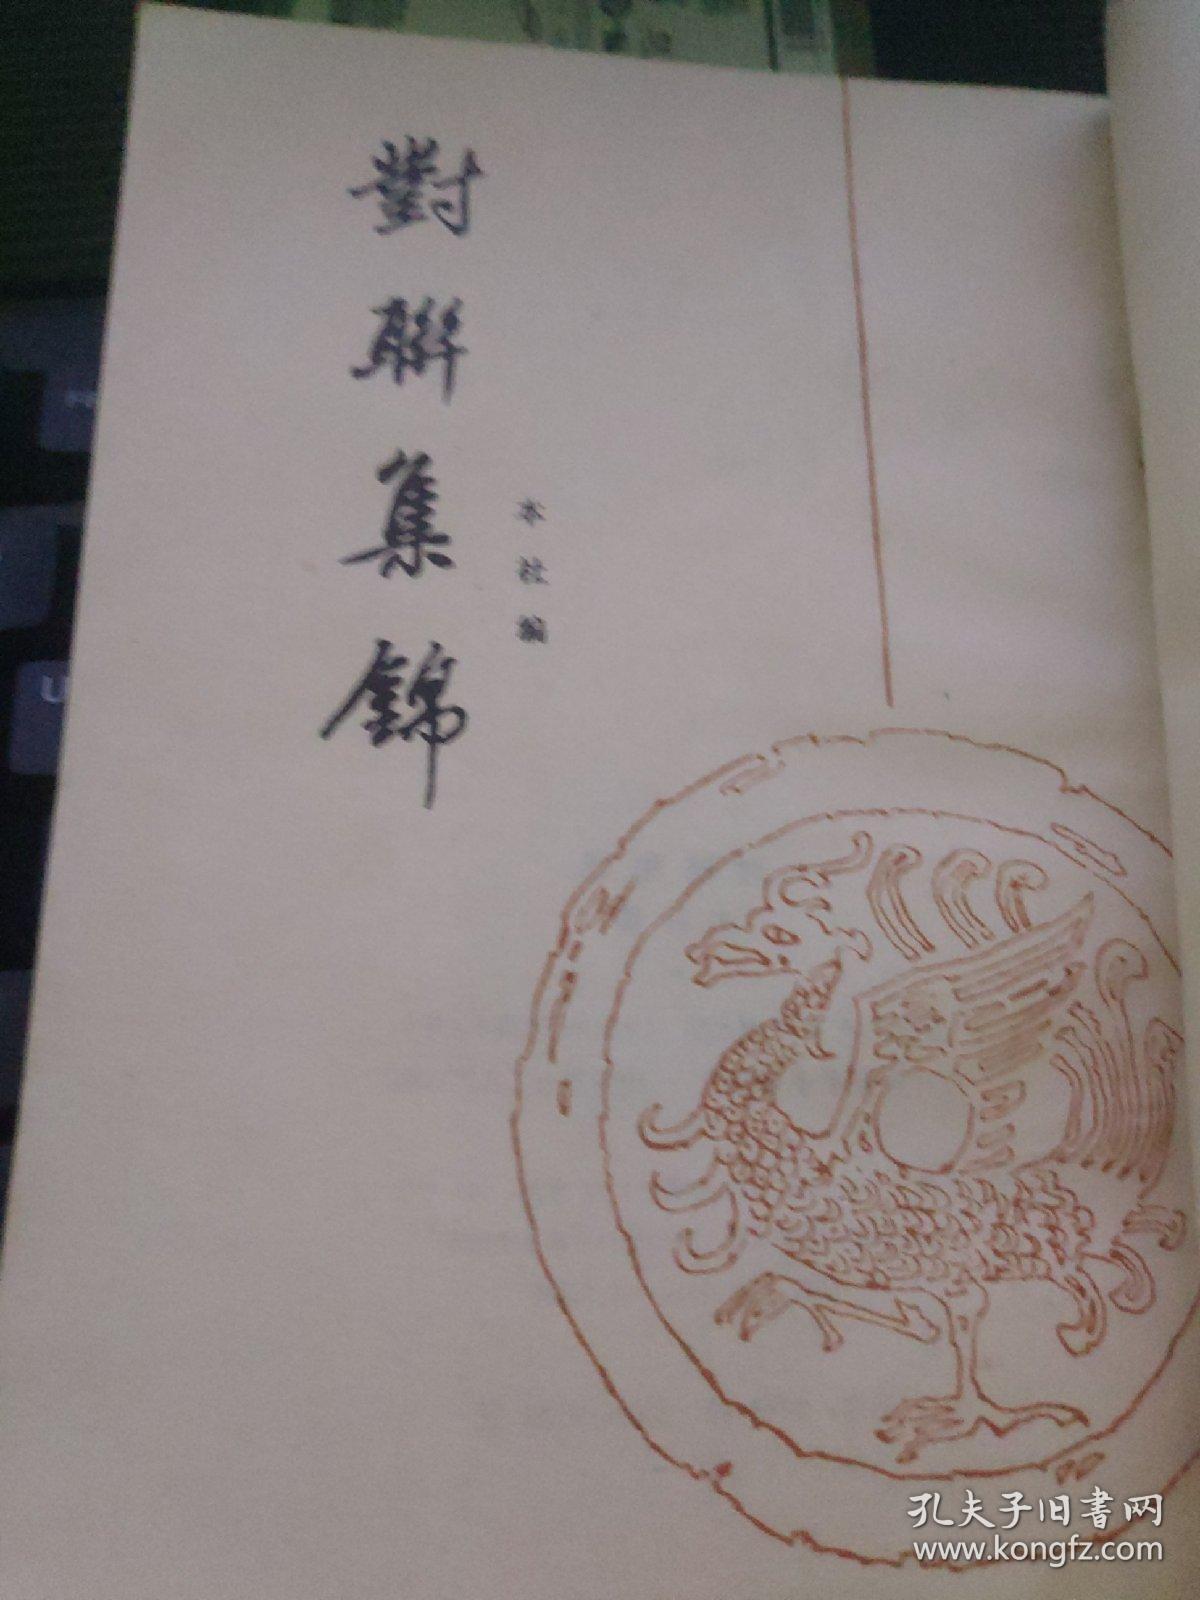 對聯集錦
本社编
孔夫子旧書网
www.kongfz.com